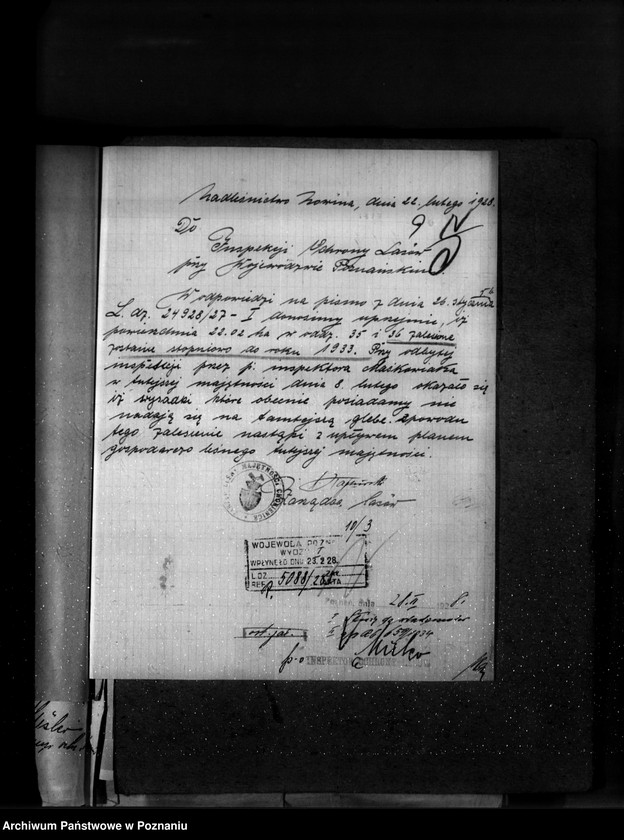 Nadleśnictwo Nowina, dnia 22. lutego 1928.
9
Do
Inspekcji Ochrony Lasów
przy Województwie Poznańskim
W odpowiedzi na pismo z dnia 26. stycznia
L. dz. 24928/27 - I donosimy uprzejmie, iż
powierzchnia 22.02 ha w oddz. 35 i 36 zalesione
zostanie stopniowo do roku 1933. Przy odbytej
inspekcji przez p. inspektora Maćkowiaka
w tutejszej majętności dnia 8. lutego okazało się
iż wysadki które obecnie posiadamy nie
nadają się na tamtejszą glebę. Zpowodu
tego zalesienie nastąpi z upływem planem
gospodarczo leśnego tutejszej majętności.
Zarządca lasów
10/3
WOJEWODA POZN
WYDZ
WPŁYNĘŁO DNIU 23.2.28.
L. DZ. 5088/28
REF.
Poznań, dnia 28.II 1928.
I
II
p-o INSPEKTOR OCHRONY
Archiwum Państwowe w Poznaniu